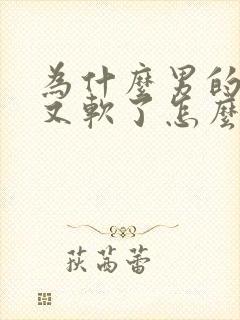 為什麼男的
又軟了怎麼
荻芮蕾